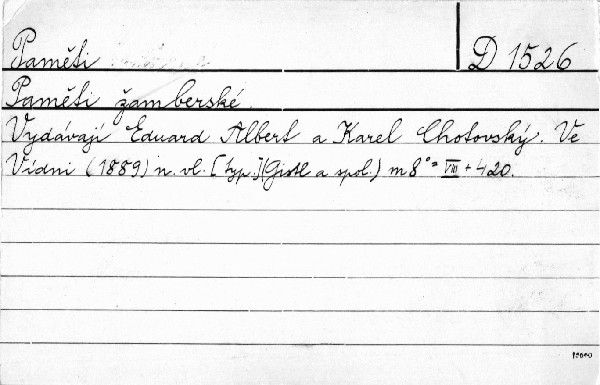 Paměti D 1526
Paměti žamberské
Vydávají Eduard Albert a Karel Chotovský. Ve
Vídni (1889) n. vl. [typ.](Gistl a spol.) m8°= VIII + 420.